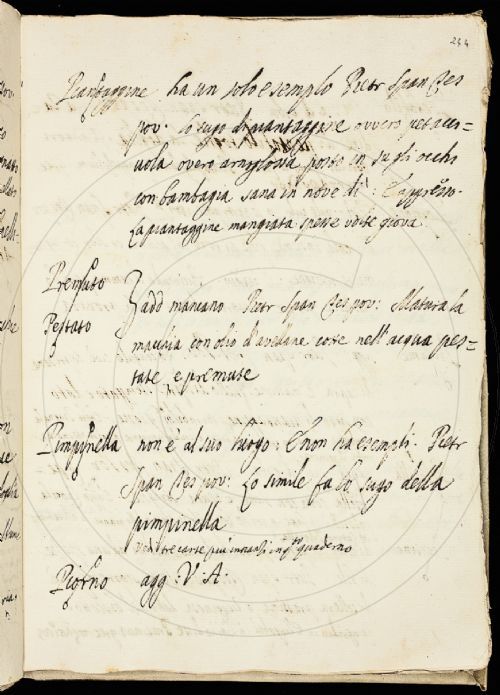 244
Piantaggine ha un solo esemplo Pietr Span Tes
pov. Lo sugo di piantaggine overo petacci=
uola overo arnoglossa posto in su gli occhi
con bambagia sana in nove dì: E appresso.
La piantaggine mangiata spesse volte giova.
Premuto
Pestato
add mancano Pietr Span Tes pov: Matura la
macchia con olio d'avellane cotte nell'acqua pes=
tate e premute
Pimpinella non è al suo luogo: E non ha esempli. Pietr
Span Tes pov: Lo simile fa lo sugo della
pimpinella
vedi tre carte più innanzi in qto quaderno
Piorno agg: V: A: